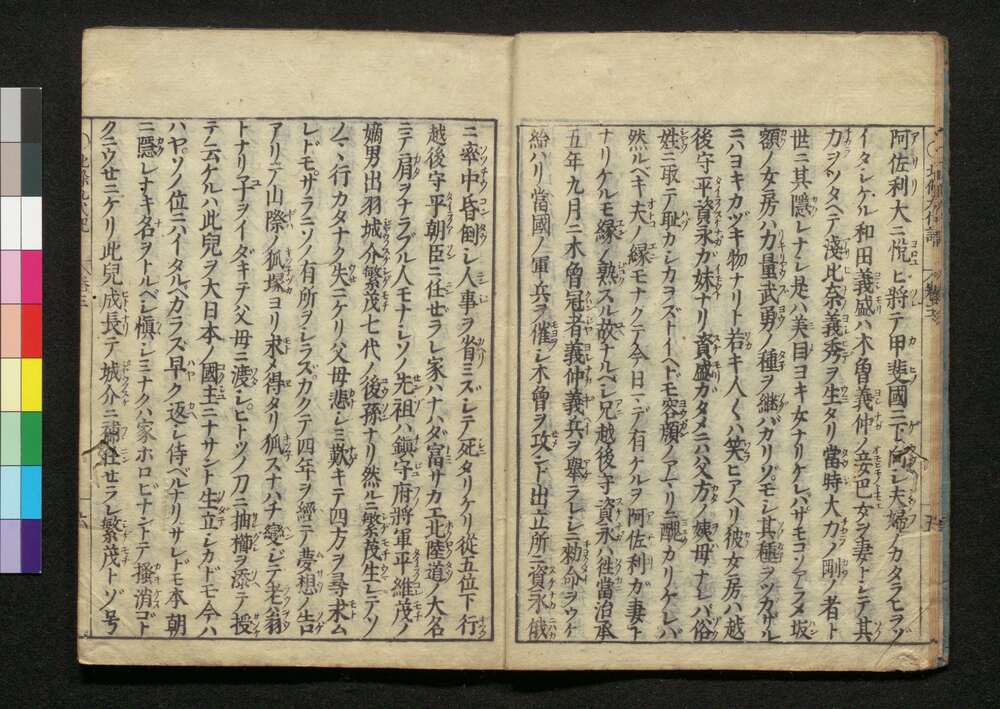 阿佐利大ニ悦ビ將テ甲斐國ニ下向シ夫婦ノカタラヒヲゾ
イタシケル和田義盛ハ木曽義仲ノ妾巴女ヲ妻トシテ其
力ヲツタヘテ淺比奈義秀ヲ生タリ當時大力ノ剛ノ者ト
世ニ其隱レナシ是ハ美目ヨキ女ナリケレバサモコソアラメ坂
額ノ女房ハ力量武勇ノ種ヲ繼バカリゾモシ其種ヲツガズ
ニハヨキカヅキ物ナリト若キ人〱ハ笑ヒアヘリ彼女房ハ越
後守平資永ガ妹ナリ資盛カタメニハ父方ノ姨母ナレバ俗
姓ニ取テ耻カシカラズトイヘドモ容顔ノアマリニ醜カリケレバ
然ルベキ夫ノ縁モナクテ今日マデ有ケルヲ阿佐利ガ妻ト
ナリケルモ縁ノ熟スル故ナルベシ兄越後守資永ハ徃當治承
五年九月ニ木曽冠者義仲義兵ヲ舉ラレシニ勅命ヲウケ
給ハリ當國ノ軍兵ヲ催シ木曽ヲ攻ント出立所ニ資永俄
ニ率中昏倒シ人事ヲ省ミズシテ死タリケリ從五位下行
越後守平朝臣ニ任セラレ家ハナハダ富サカエ北陸道ノ大名
ニテ肩ヲナラブル人モナシソノ先祖ハ鎭守府將軍平維茂ノ
嫡男出羽城介繁茂七代ノ後孫ナリ然ルニ繁茂生レテソ
ノマヽ行カタナク失ニケリ父母悲シミ歎キテ四方ヲ尋求ム
レドモサラニソノ有所ヲシラズカクテ四年ヲ經テ夢想ノ告
アリテ山際ノ狐塚ヨリ求メ得タリ狐スナハチ變ジテ老翁
トナリ子ヲイダキテ父母ニ渡シヒトツノ刀ニ抽櫛ヲ添テ授
テ云ケルハ此兒ヲ大日本ノ國主ニナサント生立シカドモ今ハ
ハヤソノ位ニハイタルベカラズ早ク返シ侍ベルナリサレドモ本朝
ニ隱レナキ名ヲトルベシ愼シミナクハ家ホロビナントテ掻消コト
クニウセニケリ此兒成長テ城介ニ補任セラレ繁茂トゾ号